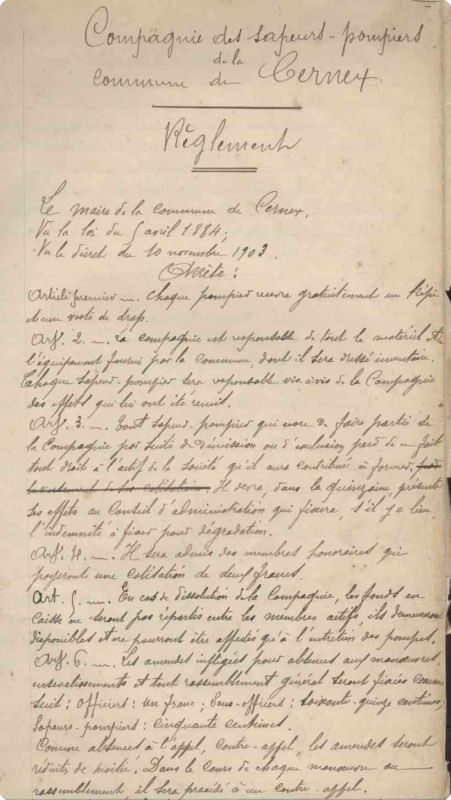 Compagnie des sapeurs-pompiers
de la
commune de Cernex
Règlement
Le maire de la commune de Cernex,
Vu la loi du 5 avril 1884;
Vu le décret du 10 novembre 1903.
Arrête:
Article premier _ Chaque pompier recevra gratuitement un Képi
et une veste de drap.
Art. 2. _ La compagnie est responsable de tout le matériel et de
l'équipement fourni par la commune, dont il sera dressé inventaire.
Chaque sapeur-pompier sera responsable vis à vis de la Compagnie
des effets qui lui ont été remis.
Art. 3. _ Tout sapeur-pompier qui cesse de faire partie de
la Compagnie par suite de démission ou d'exclusion perd de ce fait
tout droit à l'actif de la Société qu'il aura contribué à former,
Il devra, dans la quinzaine, présenter
ses effets au Conseil d'administration qui fixera, s'il y a lieu,
l'indemnité à fixer pour dégradation.
Art. 4. _ Il sera admis des membres honoraires qui
payeront une cotisation de deux francs.
Art. 5. _ En cas de dissolution de la Compagnie, les fonds en
caisse ne seront pas répartis entre les membres actifs, ils demeureront
disponibles et ne pourront être affectés qu'à l'entretien des pompes.
Art. 6. _ Les amendes infligées pour absences aux manœuvres,
ensevelissements et tout rassemblement général seront fixées comme
suit: Officiers: un franc; Sous-officiers: soixante-quinze centimes;
Sapeurs-pompiers: cinquante centimes.
Comme absences à l'appel, contre-appel, les amendes seront
réduites de moitié. Dans le cours de chaque manœuvre ou
rassemblement, il sera procédé à un contre-appel.